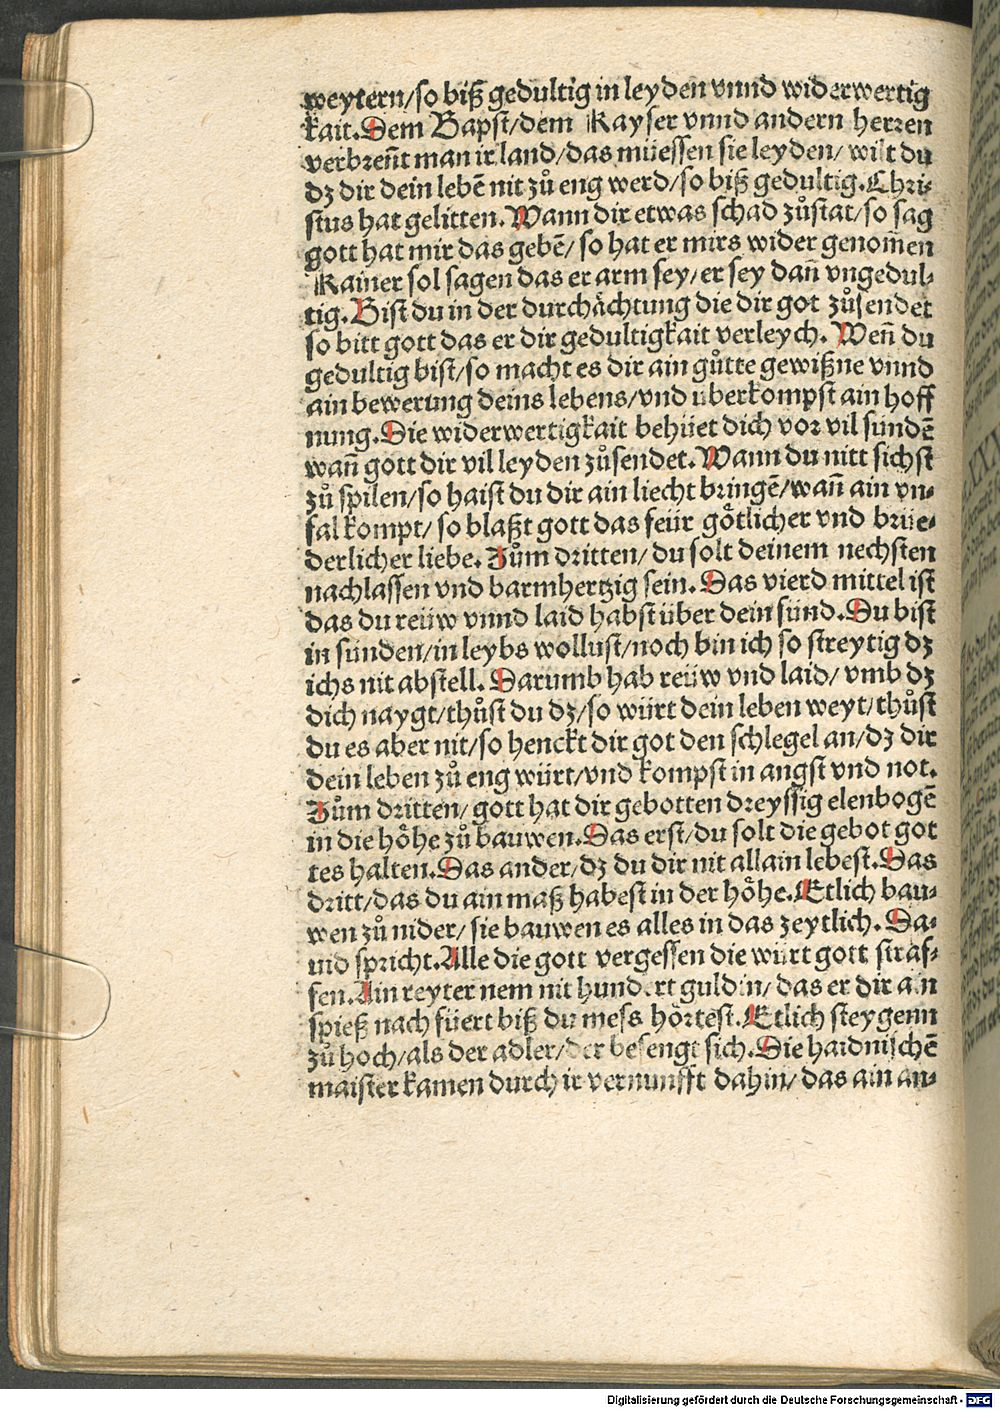 weytern/so biß gedultig in leyden vnnd widerwertig
kait. Dem Bapst/dem Kayser vnnd andern herren
verbreñt man ir land/das müessen sie leyden/ wilt du
dz dir dein lebē nit zů eng werd/so biß gedultig. Chri-
stus hat gelitten. Wann dir etwas schad zůstat/so sag
gott hat mir das gebē/ so hat er mirs wider genom̄en
Kainer sol sagen das er arm sey/er sey dañ vngedul-
tig. Bist du in der durchächtung die dir got zůsendet
so bitt gott das er dir gedultigkait verleych. Weñ du
gedultig bist/so macht es dir ain gůtte gewißne vnnd
ain bewerung deins lebens/vnd überkompst ain hoff
nung. Die widerwertigkait behüet dich vor vil sündē
wañ gott dir vil leyden zůsendet. Wann du nitt sichst
zů spilen/so haist du dir ain liecht bringē/wañ ain vn-
fal kompt/ so blaßt gott das feür götlicher vnd brüe-
derlicher liebe. Zům dritten/ du solt deinem nechsten
nachlassen vnd barmhertzig sein. Das vierd mittel ist
das du reüw vnnd laid habst über dein sünd. Du bist
in sünden/in leybs wollust/noch bin ich so streytig dz
ichs nit abstell. Darumb hab reüw vnd laid/ vmb dz
dich naygt/thůst du dz/so würt dein leben weyt/thůst
du es aber nit/so henckt dir got den schlegel an/dz dir
dein leben zů eng würt/vnd kompst in angst vnd not.
Zům dritten/ gott hat dir gebotten dreyssig elenbogē
in die höhe zů bauwen. Das erst/du solt die gebot got
tes halten. Das ander/dz du dir nit allain lebest. Das
dritt/das du ain maß habest in der höhe. Etlich bau-
wen zů nider/ sie bauwen es alles in das zeytlich. Da-
uid spricht. Alle die gott vergessen die würt gott straf-
fen. Ain reyter nem nit hundert guldin/ das er dir ain
spieß nach füert biß du mess hörtest. Etlich steygenn
zů hoch/als der adler/der besengt sich. Die haidnischē
maister kamen durch ir vernunfft dahin/ das ain an-
Digitalisierung gefördert durch die Deutsche Forschungsgemeinschaft - DFG